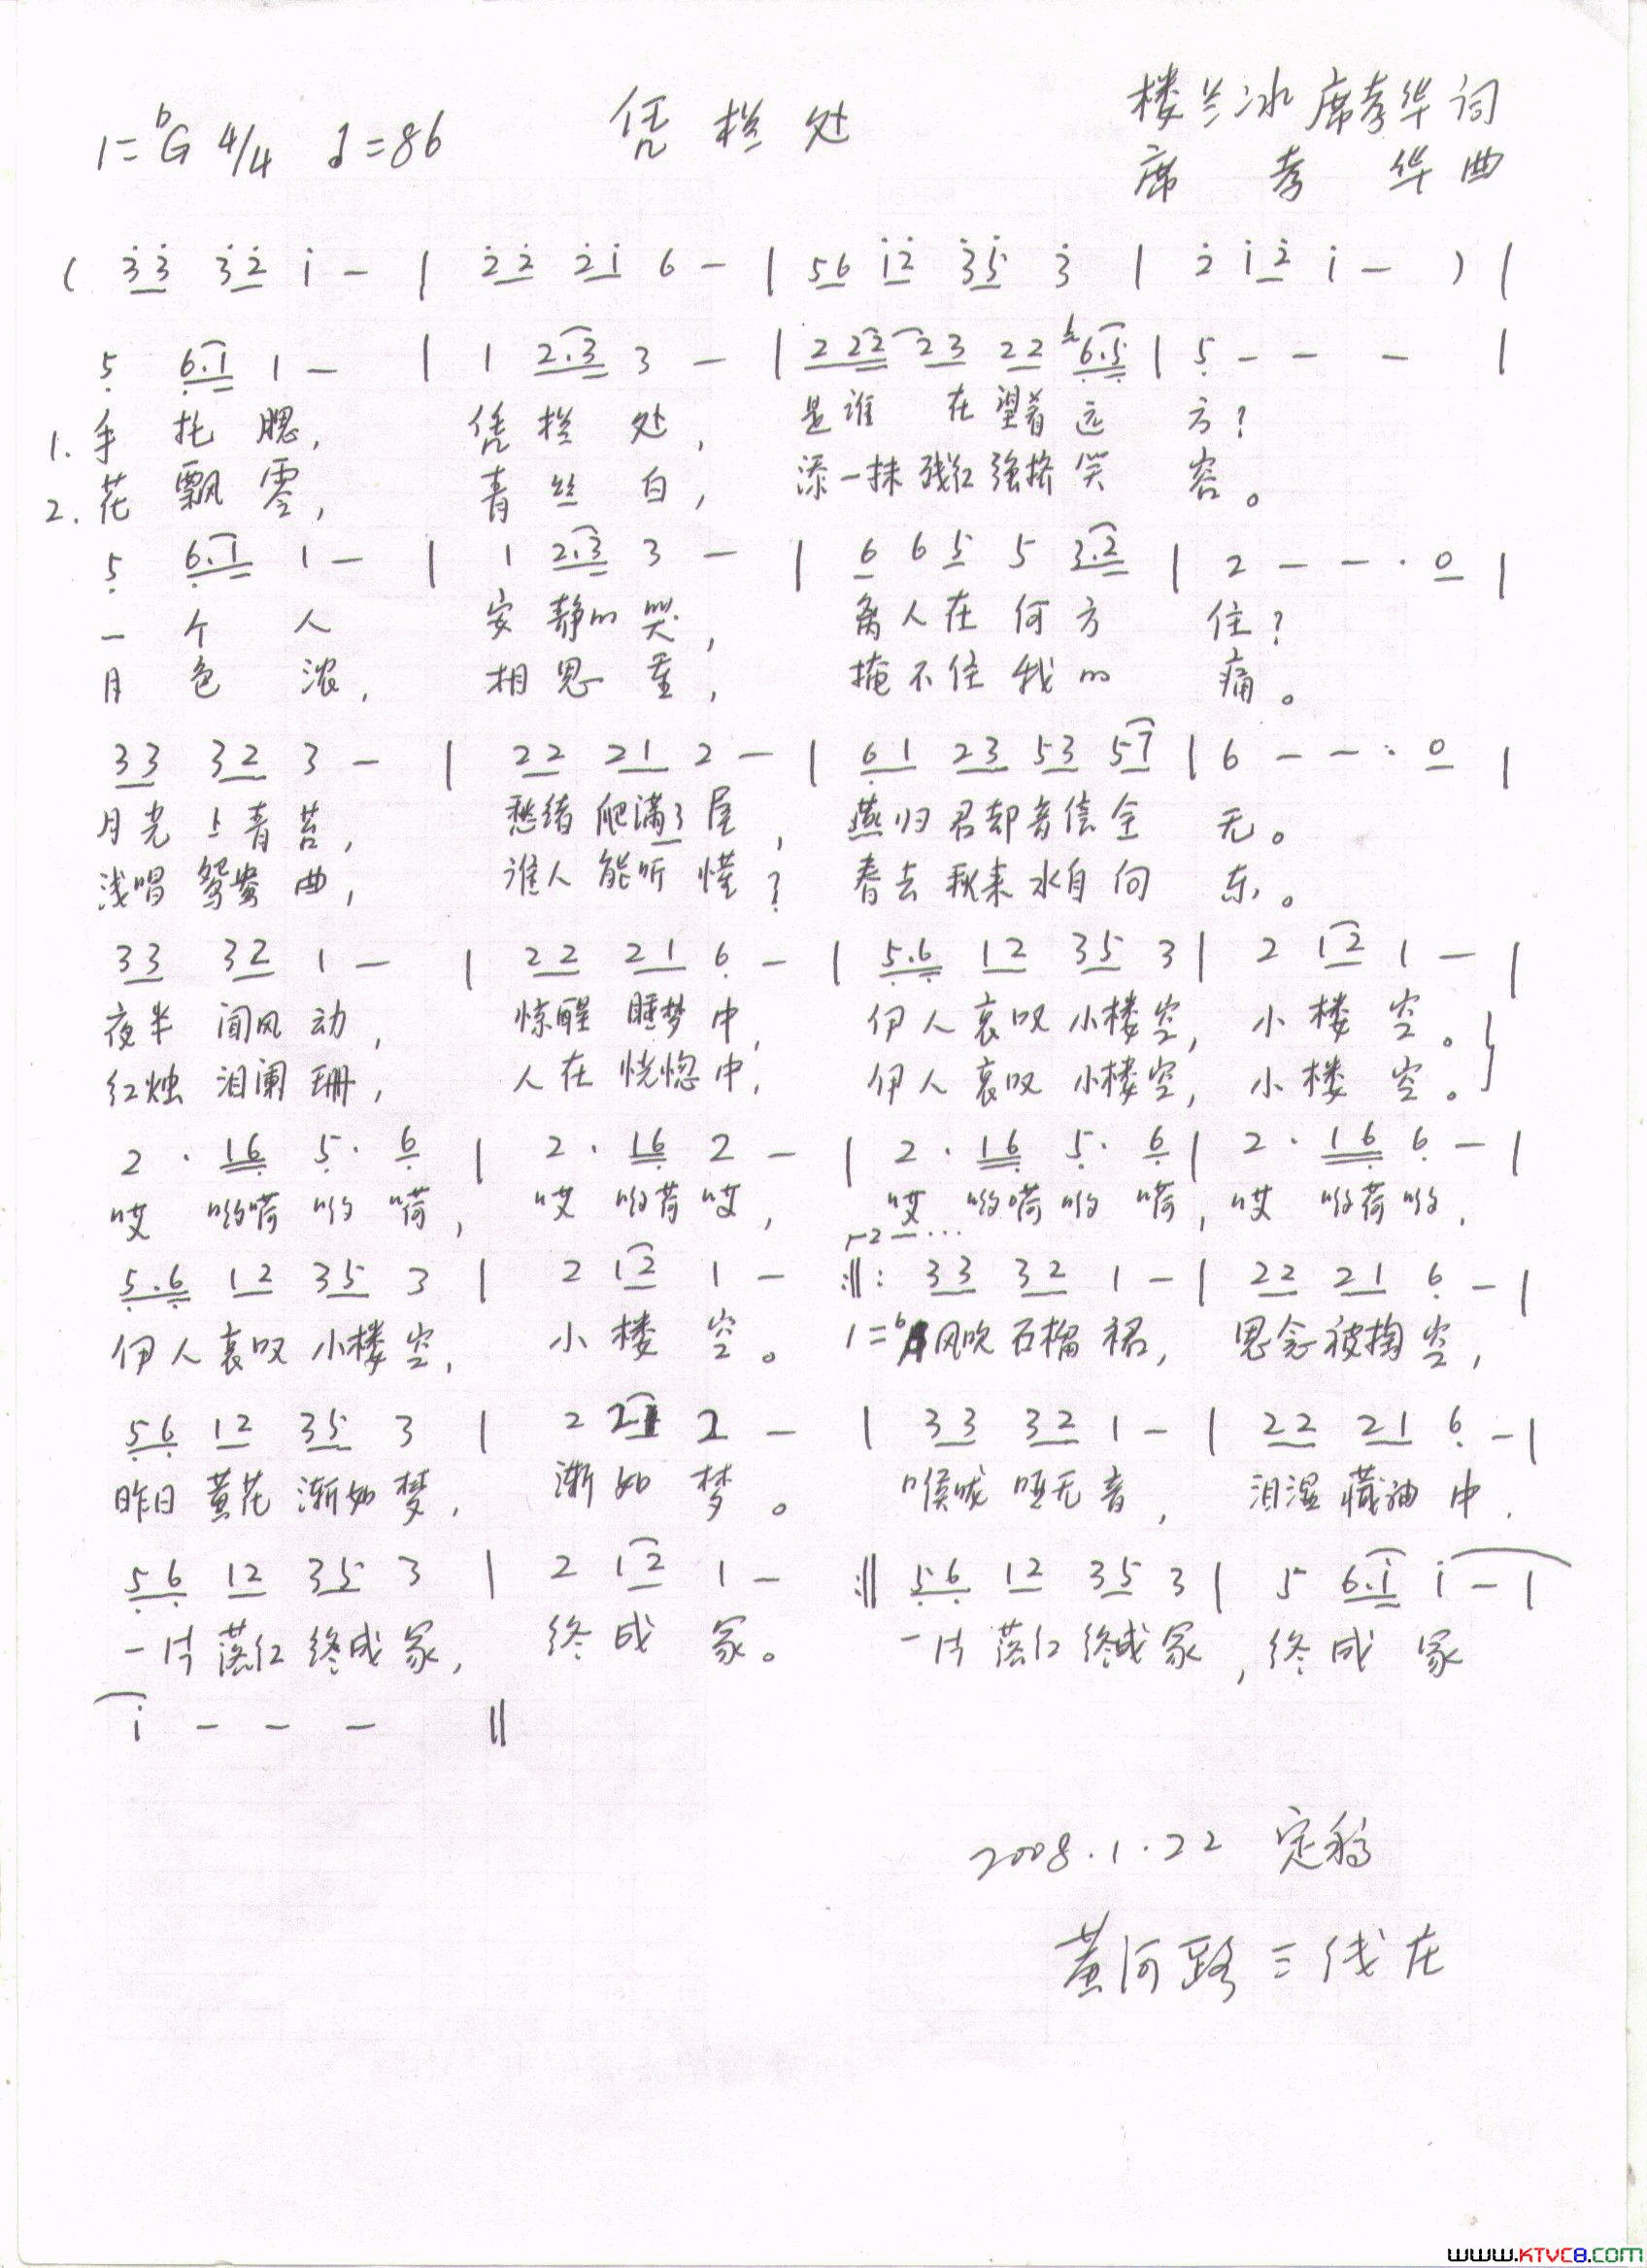 1=♭G 4/4 ♩=86 凭栏处 楼兰冰 席孝华词
席孝华曲
( 3̇3̇ 3̇2̇ 1̇ — | 2̇2̇ 2̇1̇ 6 — | 56 1̇2̇ 3̇5̇ 3̇ | 2̇ 1̇2̇ 1̇ — ) |
5 6.1 1 — | 1 2.3 3 — | 2 22 23 22 6.5 | 5 — — — |
1. 手托腮, 凭栏处, 是谁在望着远方?
2. 花飘零, 青丝白, 添一抹残红强挤笑容。
5 6.1 1 — | 1 2.3 3 — | 6 6 5 5 3.2 | 2 — — · 0 |
一个人 安静的哭, 离人在何方住?
月色浓, 相思重, 掩不住我的痛。
33 32 3 — | 22 21 2 — | 61 23 53 57 | 6 — — · 0 |
月光上青苔, 愁绪爬满了屋, 燕归君却音信全无。
浅唱鸳鸯曲, 谁人能听懂? 春去秋来水自向东。
33 32 1 — | 22 21 6 — | 5.6 12 35 3 | 2 12 1 — |
夜半闻风动, 惊醒睡梦中, 伊人哀叹小楼空, 小楼空。
红烛泪阑珊, 人在恍惚中, 伊人哀叹小楼空, 小楼空。
2 · 16 5 · 6 | 2 · 16 2 — | 2 · 16 5 · 6 | 2 · 16 6 — |
哎哟嗬哟嗬, 哎哟荷哎, 哎哟嗬哟嗬, 哎哟荷哟,
r2—…
5.6 12 35 3 | 2 12 1 — :||: 33 32 1 — | 22 21 6 — |
伊人哀叹小楼空, 小楼空。 1=♭A 风吹石榴裙, 思念被掏空,
56 12 35 3 | 2 21 2 — | 33 32 1 — | 22 21 6 — |
昨日黄花渐如梦, 渐如梦。 喉咙哑无音, 泪湿藏袖中.
56 12 35 3 | 2 12 1 — :|| 56 12 35 3 | 5 6.1̇ 1̇ — |
一片落红终成冢, 终成冢。 一片落红终成冢, 终成冢
1̇ — — — ||
2008.1.22 定稿
黄河路三线在
WWW.KTVC8.COM